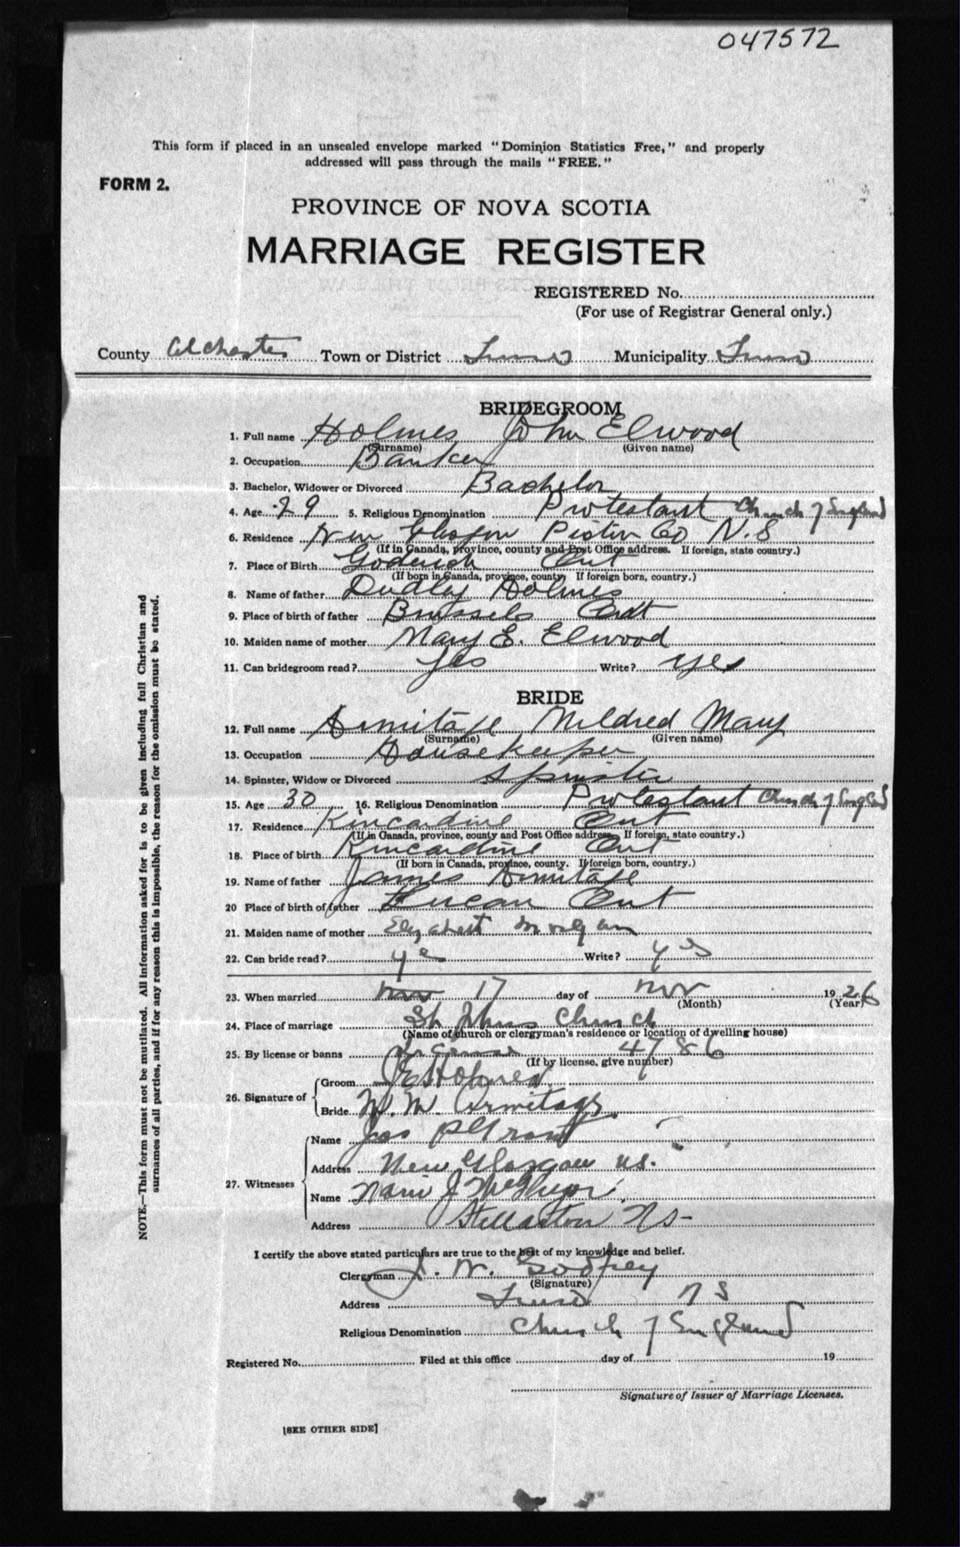 047572
This form if placed in an unsealed envelope marked "Dominion Statistics Free," and properly
addressed will pass through the mails "FREE."
FORM 2.
PROVINCE OF NOVA SCOTIA
MARRIAGE REGISTER
REGISTERED No.
(For use of Registrar General only.)
County Colchester Town or District Truro Municipality Truro
BRIDEGROOM
1. Full name Holmes John Elwood
(Surname) (Given name)
2. Occupation Banker
3. Bachelor, Widower or Divorced Bachelor
4. Age 29 5. Religious Denomination Protestant Church of England
6. Residence New Glasgow Pictou Co N.S
(If in Canada, province, county and Post Office address. If foreign, state country.)
7. Place of Birth Goderich Ont
(If born in Canada, province, county. If foreign born, country.)
8. Name of father Dudley Holmes
9. Place of birth of father Brussels Ont
10. Maiden name of mother Mary E. Elwood
11. Can bridegroom read? Yes Write? Yes
BRIDE
12. Full name Armitage Mildred Mary
(Surname) (Given name)
13. Occupation Housekeeper
14. Spinster, Widow or Divorced Spinster
15. Age 30 16. Religious Denomination Protestant Church of England
17. Residence Kincardine Ont
(If in Canada, province, county and Post Office address. If foreign, state country.)
18. Place of birth Kincardine Ont
(If born in Canada, province, county. If foreign born, country.)
19. Name of father James Armitage
20 Place of birth of father Lucan Ont
21. Maiden name of mother Elizabeth Morgan
22. Can bride read? yes Write? yes
23. When married Nov 17 day of Nov 1926
(Month) (Year)
24. Place of marriage St Johns Church
(Name of church or clergyman's residence or location of dwelling house)
25. By license or banns License 4786
(If by license, give number)
26. Signature of
Groom J E Holmes
Bride M. M. Armitage
27. Witnesses
Name Jas P Grant
Address New Glasgow N.S.
Name J
Address Stellarton NS
I certify the above stated particulars are true to the best of my knowledge and belief.
Clergyman W. Godfrey
(Signature)
Address Truro N S
Religious Denomination Church of England
Registered No. Filed at this office day of 19
Signature of Issuer of Marriage Licenses.
[SEE OTHER SIDE]
NOTE.—This form must not be mutilated. All information asked for is to be given including full Christian and
surnames of all parties, and if for any reason this is impossible, the reason for the omission must be stated.